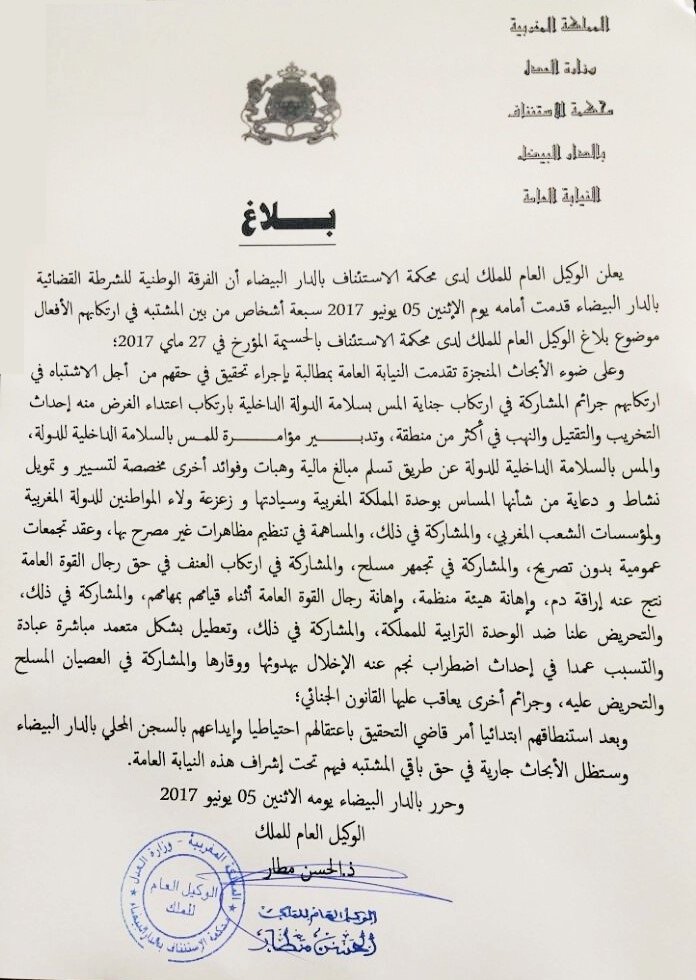 المملكة المغربية
وزارة العدل
محكمة الاستئناف
بالدار البيضاء
النيابة العامة
بــلاغ
يعلن الوكيل العام للملك لدى محكمة الاستئناف بالدار البيضاء أن الفرقة الوطنية للشرطة القضائية
بالدار البيضاء قدمت أمامه يوم الإثنين 05 يونيو 2017 سبعة أشخاص من بين المشتبه في ارتكابهم الأفعال
موضوع بلاغ الوكيل العام للملك لدى محكمة الاستئناف بالحسيمة المؤرخ في 27 ماي 2017؛
وعلى ضوء الأبحاث المنجزة تقدمت النيابة العامة بمطالبة بإجراء تحقيق في حقهم من أجل الاشتباه في
ارتكابهم جرائم المشاركة في ارتكاب جناية المس بسلامة الدولة الداخلية بارتكاب اعتداء الغرض منه إحداث
التخريب والتقتيل والنهب في أكثر من منطقة، وتدبــــير مؤامــــــرة للمس بالسلامة الداخلية للدولة،
والمس بالسلامة الداخلية للدولة عن طريق تسلم مبالغ مالية وهبات وفوائد أخرى مخصصة لتسيير و تمويل
نشاط و دعاية من شأنها المساس بوحدة المملكة المغربية وسيادتها و زعزعة ولاء المواطنين للدولة المغربية
ولمؤسسات الشعب المغربي، والمشاركة في ذلك، والمساهمة في تنظيم مظاهرات غير مصرح بها، وعقد تجمعات
عمومية بدون تصريح، والمشاركة في تجمهر مسلح، والمشاركة في ارتكاب العنف في حق رجال القوة العامة
نتج عنه إراقة دم، وإهانة هيئة منظمة، وإهانة رجال القوة العامة أثناء قيامهم بمهامهم، والمشاركة في ذلك،
والتحريض علنا ضد الوحدة الترابية للمملكة، والمشاركة في ذلك، وتعطيل بشكل متعمد مباشرة عبادة
والتسبب عمدا في إحداث اضطراب نجم عنه الإخلال بهدوئها ووقارها والمشاركة في العصيان المسلح
والتحريض عليه، وجرائم أخرى يعاقب عليها القانون الجنائي؛
وبعد استنطاقهم ابتدائيا أمر قاضي التحقيق باعتقالهم احتياطيا وإيداعهم بالسجن المحلي بالدار البيضاء
وستظل الأبحاث جارية في حق باقي المشتبه فيهم تحت إشراف هذه النيابة العامة.
وحرر بالدار البيضاء يومه الاثنين 05 يونيو 2017
الوكيل العام للملك
ذ.الحسن مطار
المملكة المغربية - وزارة العدل
الوكيل العام
للملك
محكمة الإستئناف بالدار البيضاء
الوكيل العام للملك
الحسن مطار